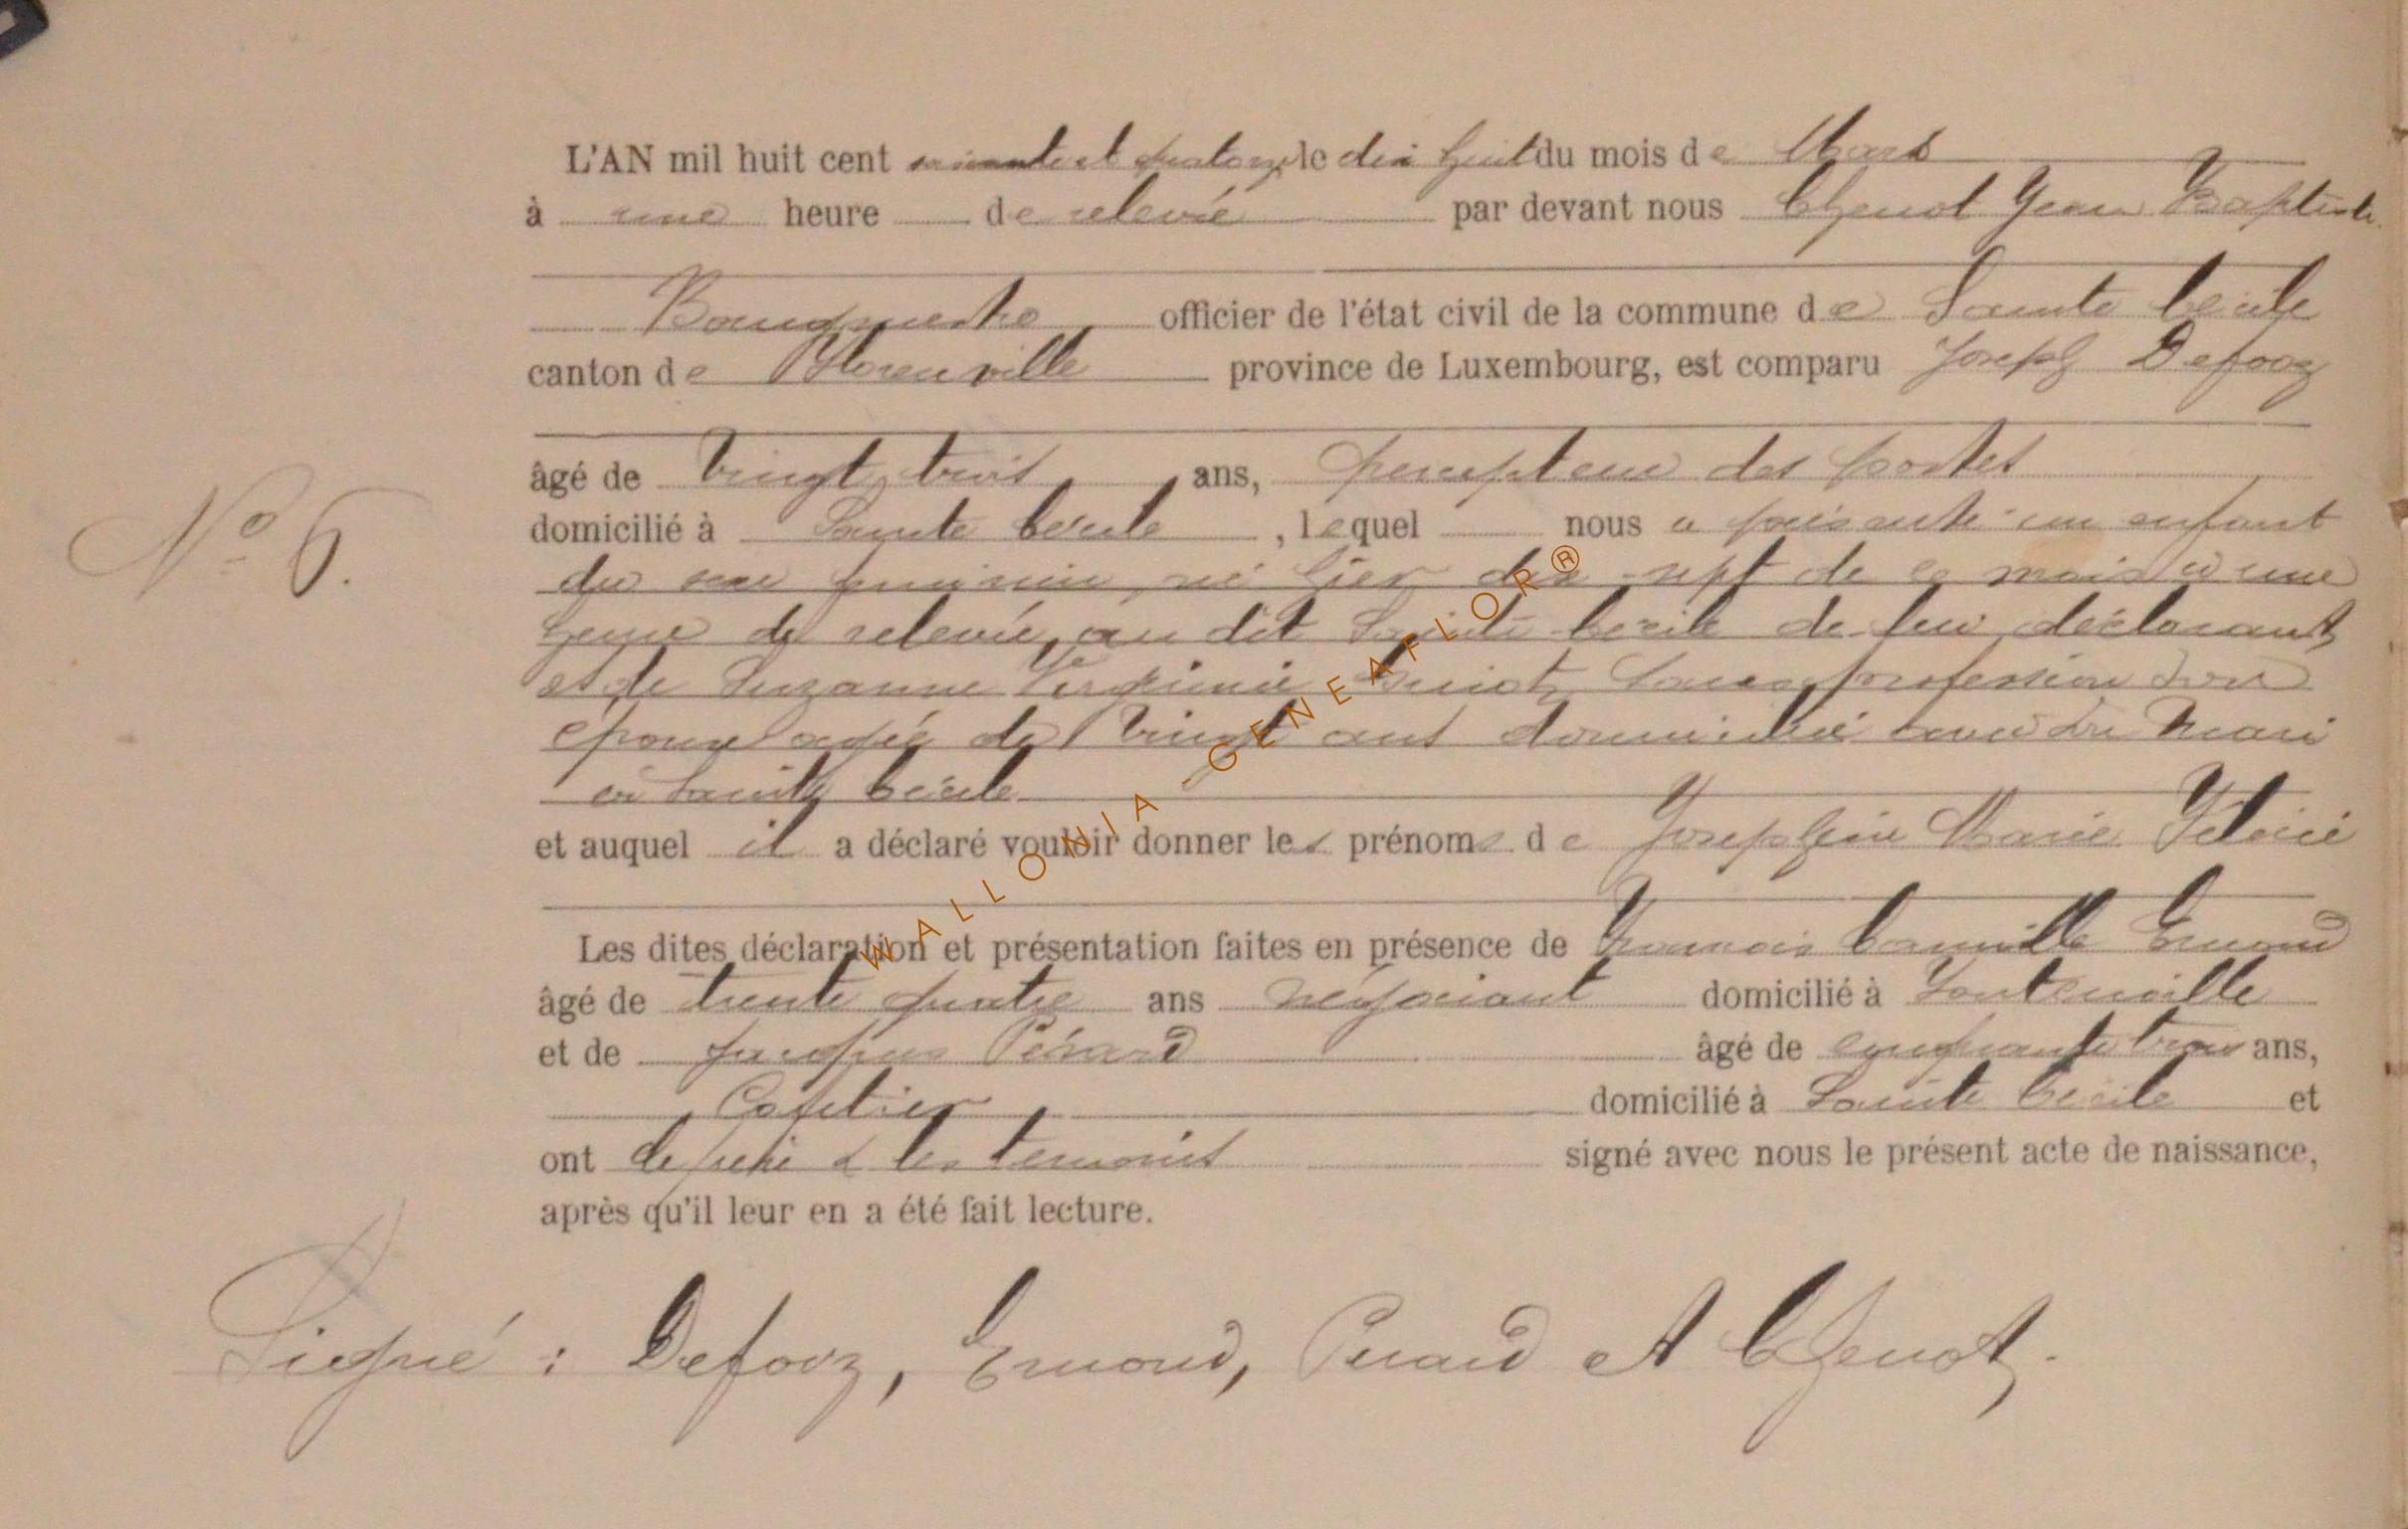 L'AN mil huit cent soixante et quatorze le dix huit du mois de Mars
à une heure de relevée par devant nous Chenot Jean Baptiste
Bourgmestre officier de l'état civil de la commune de Sainte Cécile
canton de Florenville province de Luxembourg, est comparu Joseph Defooz
âgé de vingt trois ans, percepteur des postes
N° 6.
domicilié à Sainte Cécile, lequel nous a présenté un enfant
du sexe féminin, né hier dix-sept de ce mois à une
heure de relevée, au dit Sainte Cécile de lui déclarant
et de Suzanne Virginie sans profession son
épouse agée de vingt ans domiciliée avec son mari
à Sainte Cécile
et auquel il a déclaré vouloir donner les prénoms de Joséphine Marie
Les dites déclaration et présentation faites en présence de François Camille Emond
âgé de trente quatre ans négociant domicilié à Fontenoille
et de Jacques Pérard âgé de cinquante trois ans,
Cafetier domicilié à Sainte Cécile et
ont le père & les témoins signé avec nous le présent acte de naissance,
après qu'il leur en a été fait lecture.
Signé : Defooz, Emond, Pérard et Chenot.
WALLONIA - GENEAFLOR®